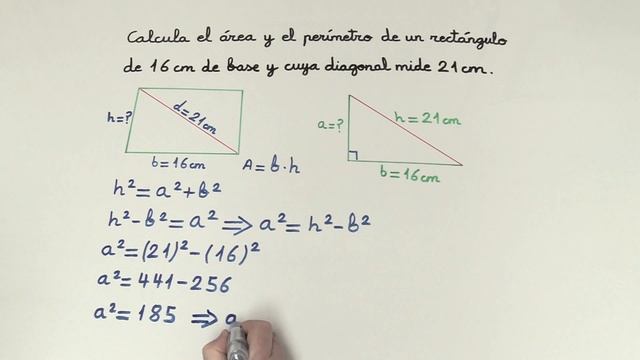 Calcula el área y el perímetro de un rectángulo
de 16 cm de base y cuya diagonal mide 21 cm.
h=?
d=21cm
b=16cm
A=b·h
a=?
h=21cm
b=16cm
h²=a²+b²
h²-b²=a² ⇒ a²=h²-b²
a²=(21)²-(16)²
a²=441-256
a²=185 ⇒ a